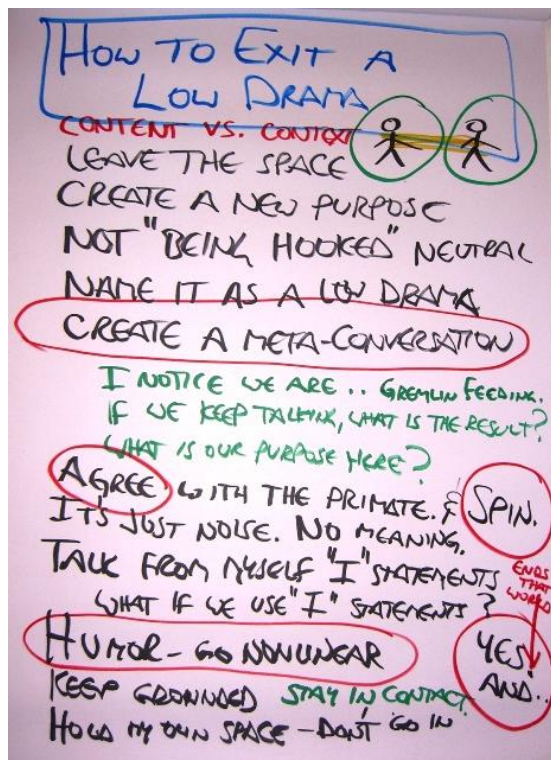 HOW TO EXIT A
LOW DRAMA
CONTENT VS. CONTEXT
LEAVE THE SPACE
CREATE A NEW PURPOSE
NOT "BEING HOOKED" NEUTRAL
NAME IT AS A LOW DRAMA
CREATE A META-CONVERSATION
I NOTICE WE ARE .. GREMLIN FEEDING.
IF WE KEEP TALKING, WHAT IS THE RESULT?
WHAT IS OUR PURPOSE HERE?
AGREE WITH THE PRIMATE. & SPIN.
IT'S JUST NOISE. NO MEANING.
TALK FROM MYSELF "I" STATEMENTS
ENDS
THAT
WORLD
WHAT IF WE USE "I" STATEMENTS?
HUMOR - GO NONLINEAR
YES
AND..
KEEP GROUNDED STAY IN CONTACT
HOLD MY OWN SPACE - DON'T GO IN